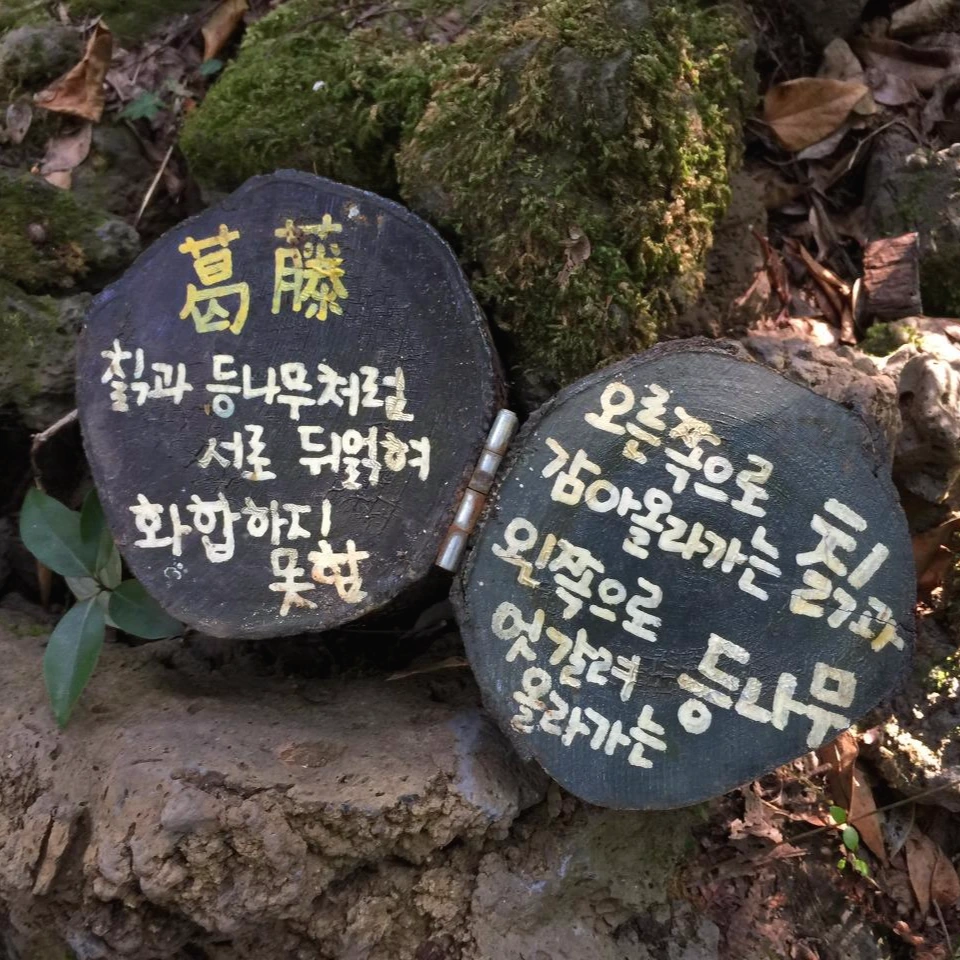 葛藤
칡과 등나무처럼
서로 뒤얽혀
화합하지!
못함
오른쪽으로
감아올라가는 칡과
왼쪽으로
엇갈려
올라가는 등나무